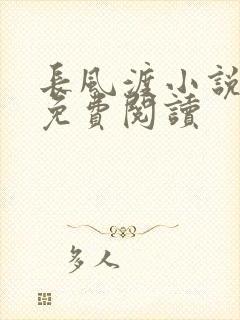 長風渡小說
免費閱讀
多人